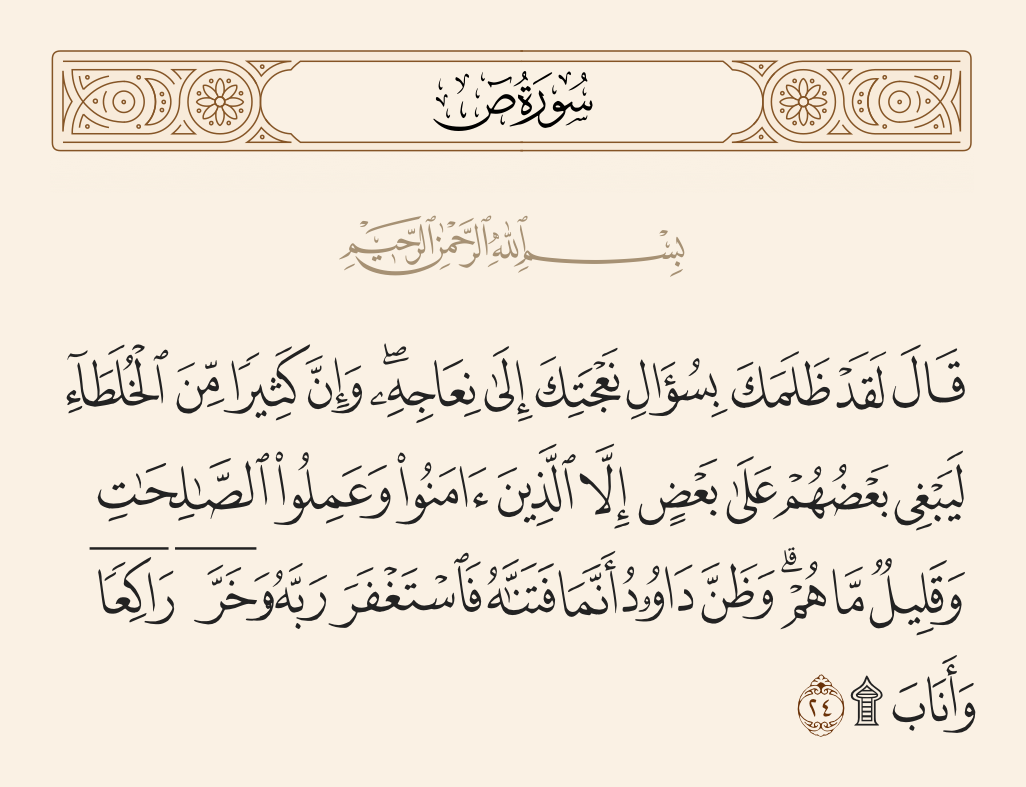 سُورَةُ صٓ
بِسْمِ ٱللَّهِ ٱلرَّحْمَٰنِ ٱلرَّحِيمِ
قَالَ لَقَدْ ظَلَمَكَ بِسُؤَالِ نَعْجَتِكَ إِلَىٰ نِعَاجِهِۦۖ وَإِنَّ كَثِيرًا مِّنَ ٱلْخُلَطَآءِ
لَيَبْغِى بَعْضُهُمْ عَلَىٰ بَعْضٍ إِلَّا ٱلَّذِينَ ءَامَنُوا۟ وَعَمِلُوا۟ ٱلصَّـٰلِحَـٰتِ
وَقَلِيلٌ مَّا هُمْۗ وَظَنَّ دَاوُۥدُ أَنَّمَا فَتَنَّـٰهُ فَٱسْتَغْفَرَ رَبَّهُۥ وَخَرَّ رَاكِعًا
وَأَنَابَ ۩ ٢٤